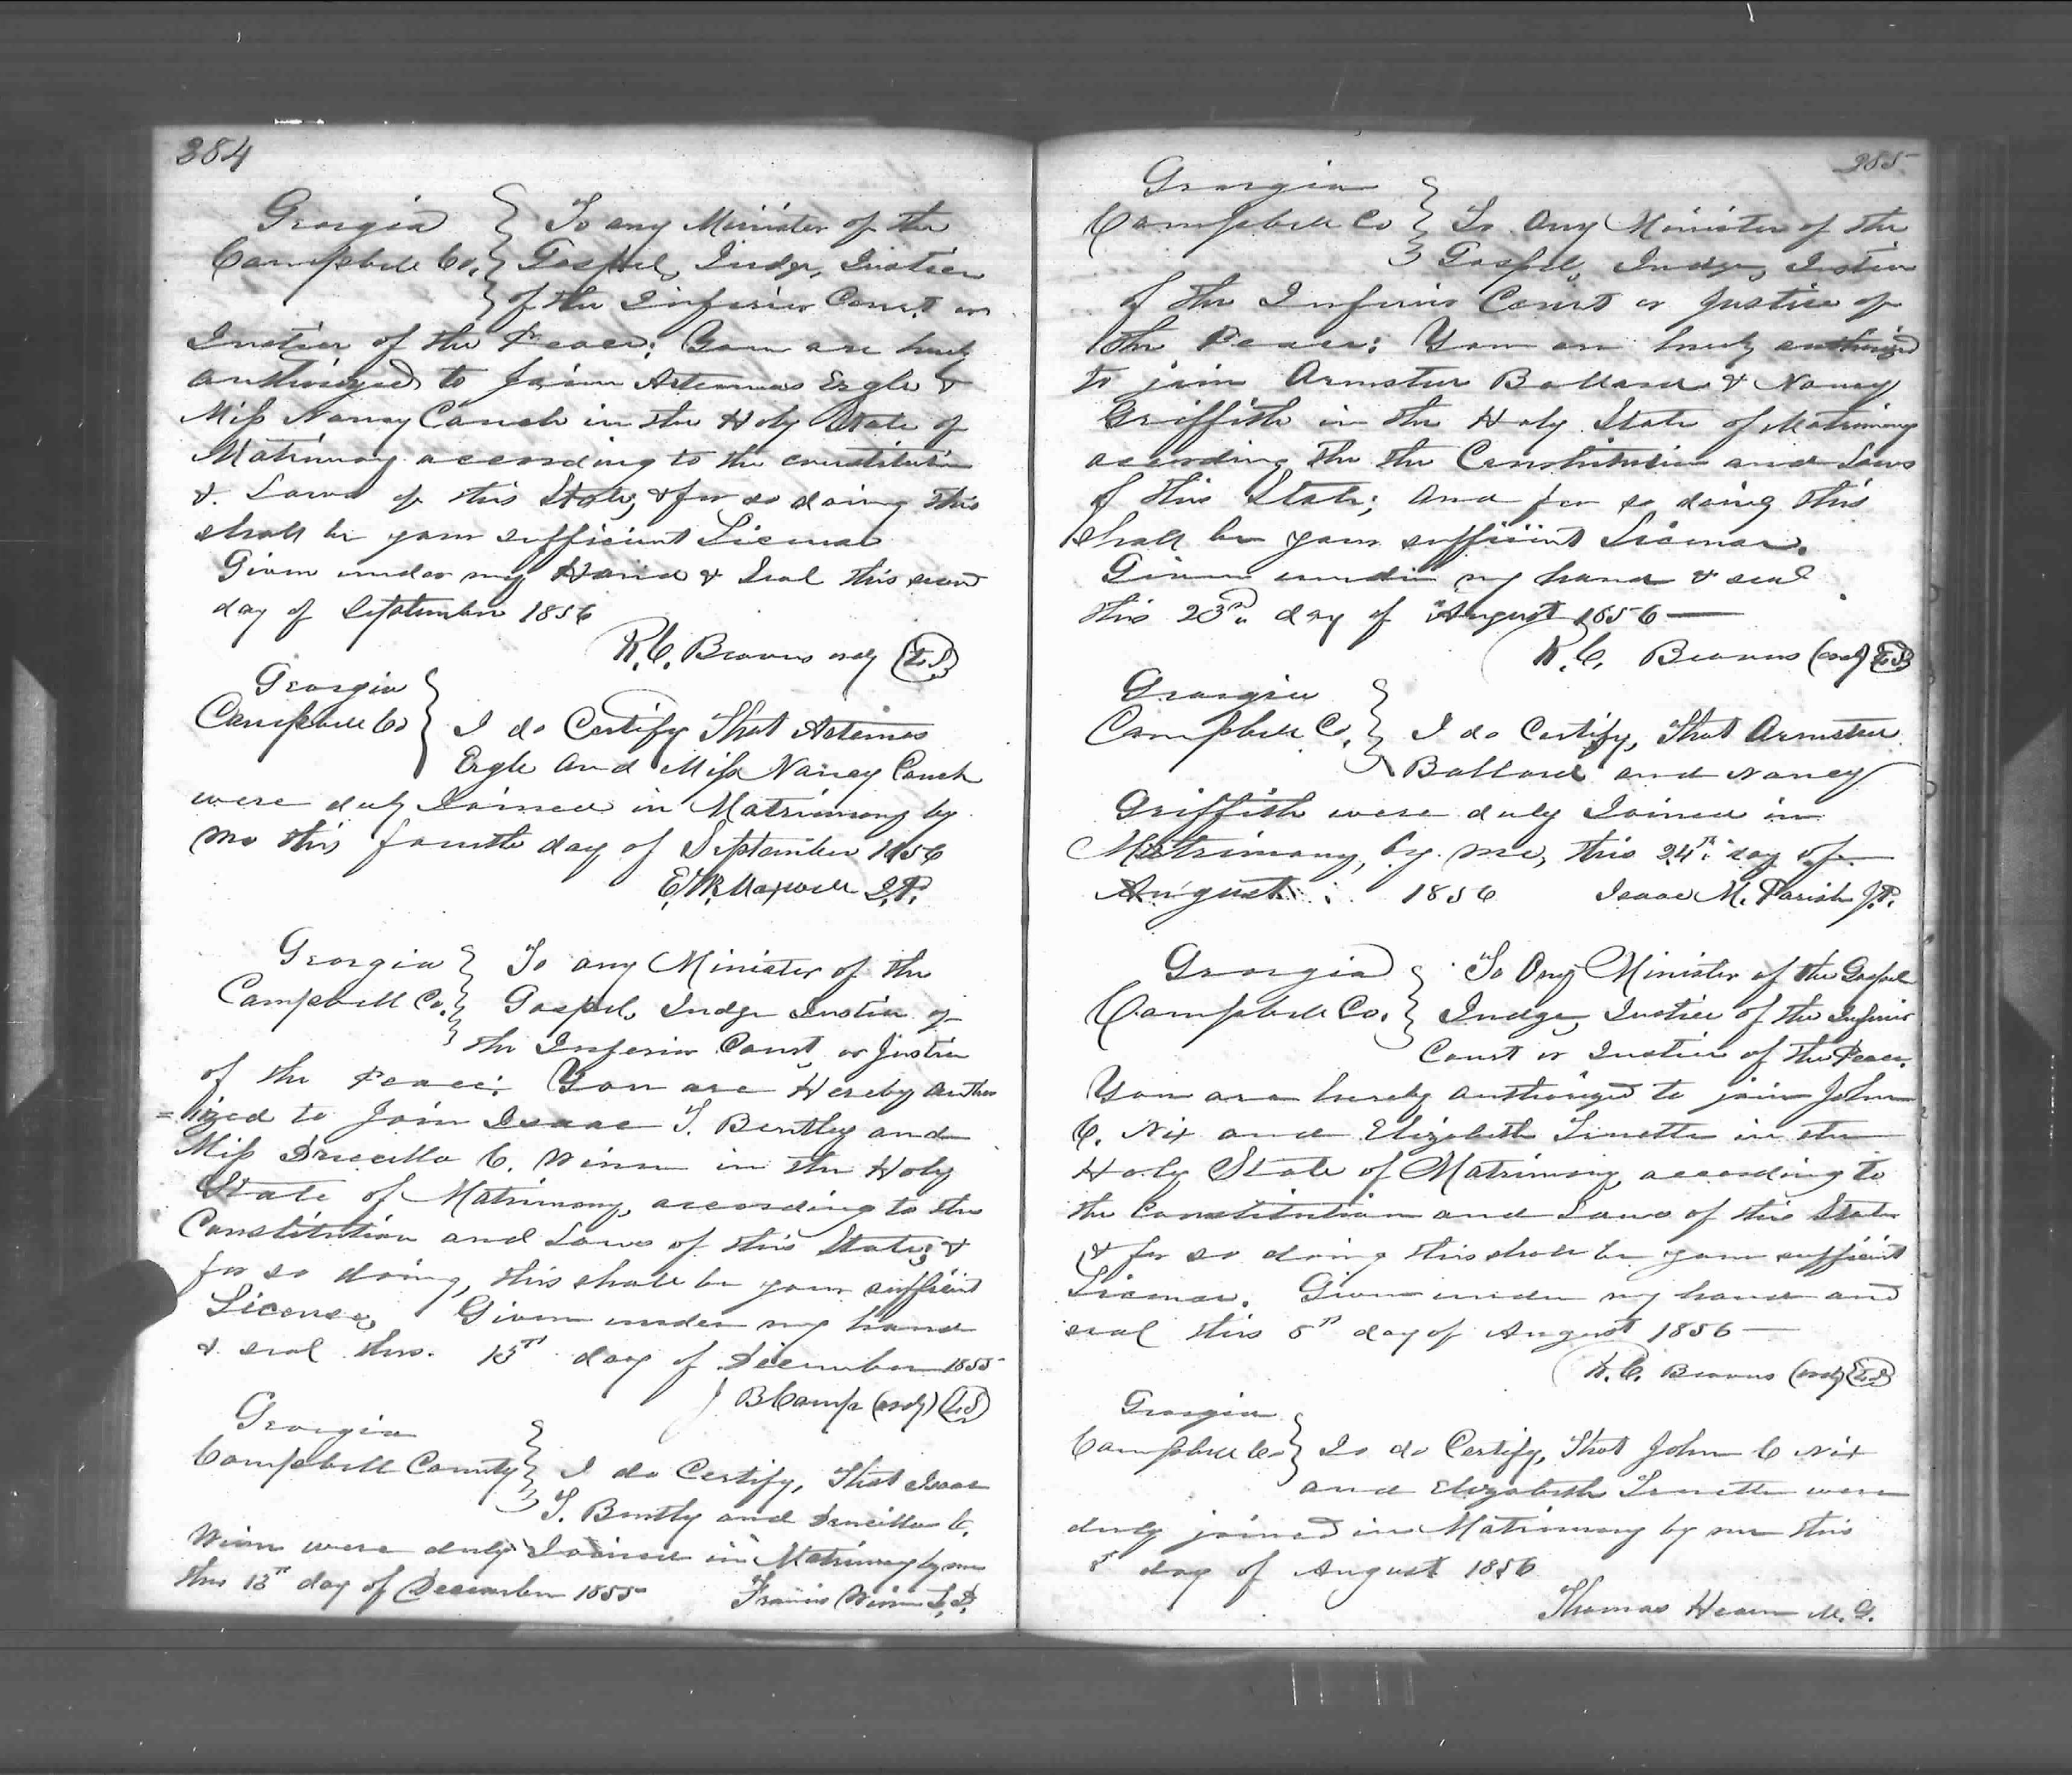 384
Georgia } To any Minister of the
Campbell Co. } Gospel, Judge, Justice
} of the Inferior Court or
Justice of the Peace; You are hereby
authorized to Join Artemas Ergle &
Miss Nancy Couch in the Holy State of
Matrimony according to the constitution
& Laws of this State; & for so doing this
shall be your sufficient License
Given under my Hand & Seal this second
day of September 1856
R. C. Beavers ordy (L.S.)
Georgia }
Campbell Co } I do Certify That Artemas
Ergle and Miss Nancy Couch
were duly Joined in Matrimony by
me this fourth day of September 1856
E. R. Maxwell J.P.
Georgia } To any Minister of the
Campbell Co. } Gospel, Judge Justice of
} the Inferior Court or Justice
of the Peace: You are Hereby autho
=ized to Join Isaac T. Bentley and
Miss Drucilla C. Winn in the Holy
State of Matrimony, according to the
Constitution and Laws of this State; &
for so doing, this shall be your sufficient
License, Given under my hand
& seal this. 13th day of December 1855
J B Camp (ordy) (L.S)
Georgia }
Campbell County } I do Certify, That Isaac
T. Bently and Drucilla C.
Winn were duly Joined in Matrimony by me
this 13th day of December 1855 Francis Winn J.P.
385
Georgia }
Campbell Co } To Any Minister of the
} Gospel, Judge, Justice
of the Inferior Court or Justice of
the Peace: You are hereby authorized
to join Armster Ballard & Nancy
Griffith in the Holy State of Matrimony
according the the Constitution and Laws
of this State; and for so doing this
shall be your sufficient License.
Given under my hand & seal
this 23rd. day of August 1856—
R. C. Beavers (ordy) (L.S)
Georgia }
Campbell C. } I do Certify, That Armster
} Ballard and Nancy
Griffith were duly Joined in
Matrimony, by me, this 24th. day of
August 1856 Isaac M. Parish J.P.
Georgia } To Any Minister of the Gospel
Campbell Co. } Judge, Justice of the Inferior
Court or Justice of the Peace.
You are hereby authorized to join John
C. Nix and Elizabeth in the
Holy State of Matrimony, according to
the Constitution and Laws of this State
& for so doing this shall be your sufficient
License. Given under my hand and
seal this 8th day of August 1856—
R. C. Beavers (ordy) (L.S)
Georgia }
Campbell Co } I do Certify, That John C Nix
and Elizabeth were
duly joined in Matrimony by me this
day of August 1856
Thomas Hearn M. G.